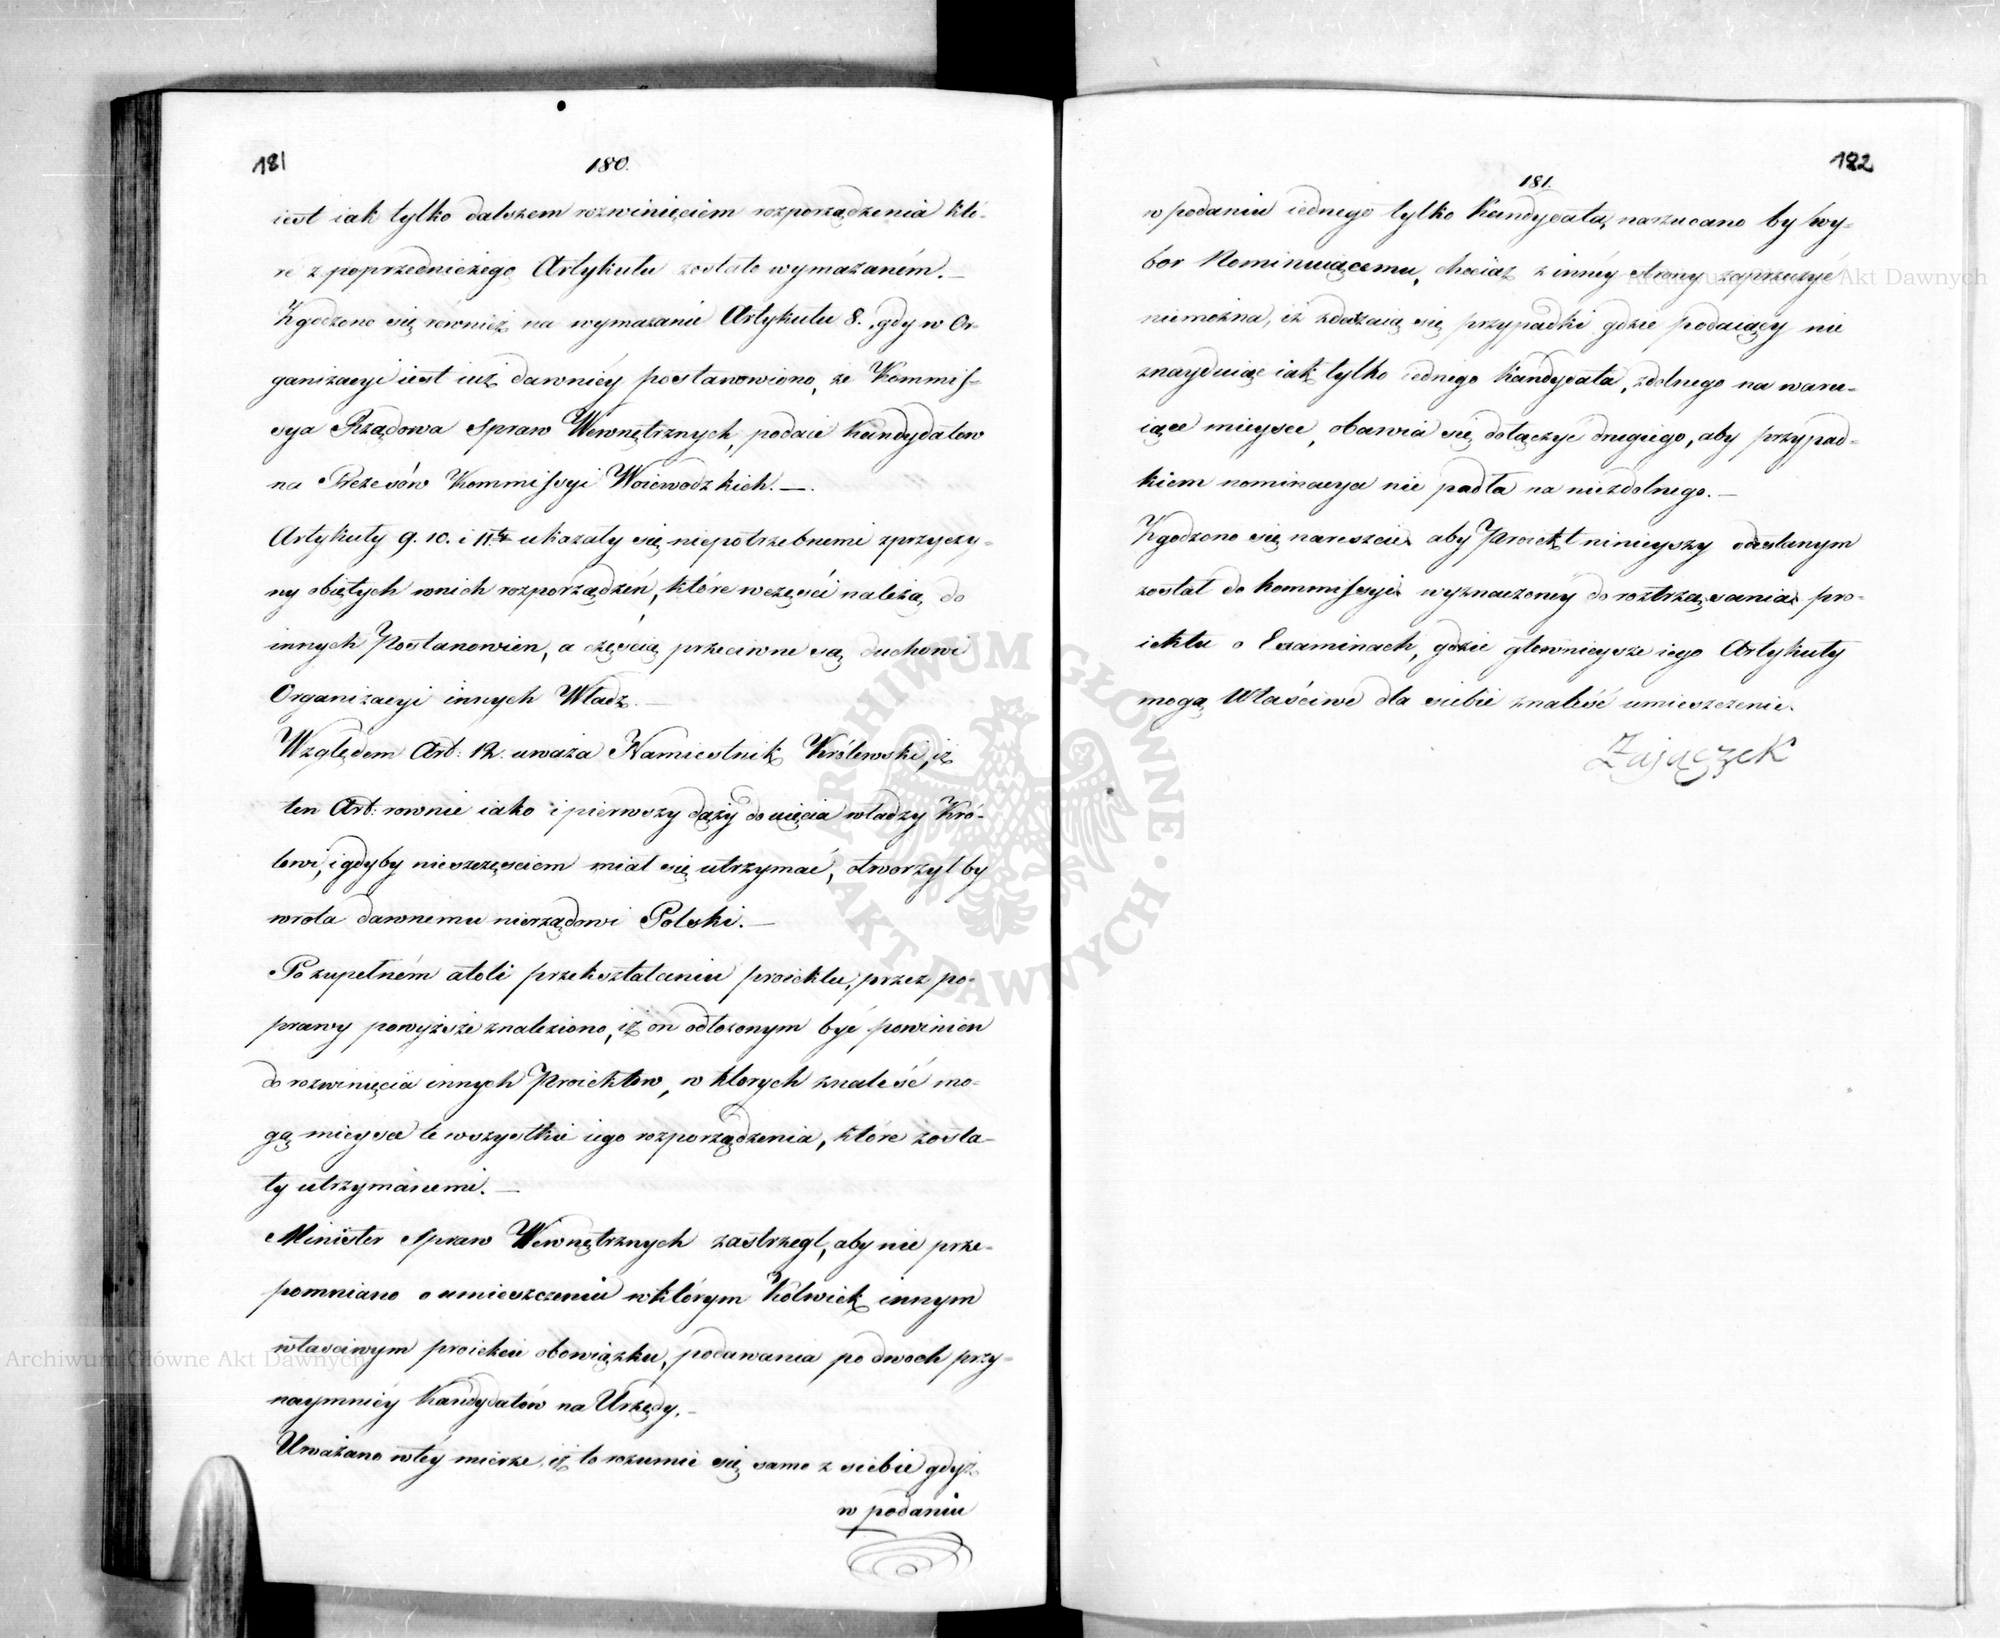 181
180.
iest iak tylko dalszem rozwinięciem rozporządzenia któ-
re z poprzedniczego Artykułu zostało wymazaném. —
Zgodzono się również na wymazanie Artykułu 8. gdy w Or-
ganizacyi iest iuż dawniéy postanowiono, że Kommis-
sya Rządowa Spraw Wewnętrznych, podaie Kandydatow
na Prezesów Kommissyi Woiewodzkich. —.
Artykuły 9. 10. i 11.ty ukazały się niepotrzebnemi zprzyczy-
ny obiętych wnich rozporządzeń, które wczęści należą do
innych Postanowien, a częścią przeciwne są duchowi
Organizacyi innych Władz. —
Względem Art: 12. uważa Namiestnik Królewski, iż
ten Art: rownie iako i pierwszy dąży do uięcia władzy Kró-
lowi, i gdyby nieszczęsciem miał się utrzymać, otworzył by
wrota dawnemu nierządowi Polski. —
Po zupełném atoli przekształceniu proiektu, przez po-
prawy powyższe znaleziono, iż on odłożonym być powinien
do rozwinięcia innych Proiektow, w ktorych znaleść mo-
gą mieysce te wszystkie iego rozporządzenia, które zosta-
ły utrzymanemi. —
Minister Spraw Wewnętrznych zastrzegł, aby nie prze-
pomniano o umieszczeniu wktórym Kolwiek innym
właściwym proiekcie obowiązku, podawania po dwoch przy-
naymniéy Kandydatów na Urzędy. —
Uważano wtéy mierze, iż to rozumie się samo z siebie gdyż
w podaniu
182
181.
w podaniu iednego tylko Kandydata, narzucano by wy-
bor Nominuiącemu, chociaż z innéy strony zaprzeczyć
niemożna, iż zdarzaią się przypadki gdzie podaiący nie
znayduiąc iak tylko iednego Kandydata, zdolnego na waku-
iące mieysce, obawia się dołączyć drugiego, aby przypad-
kiem nominacya nie padła na niezdolnego. —
Zgodzono się nareszcie aby Proiekt ninieyszy odesłanym
został do Kommissyi wyznaczonéy do roztrząsania pro-
iektu o Examinach, gdzie głownieysze iego Artykuły
mogą właściwe dla siebie znaleść umieszczenie.
Zajączek
Archiwum Główne Akt Dawnych
Archiwum Główne Akt Dawnych
ARCHIWUM GŁÓWNE • AKT DAWNYCH •